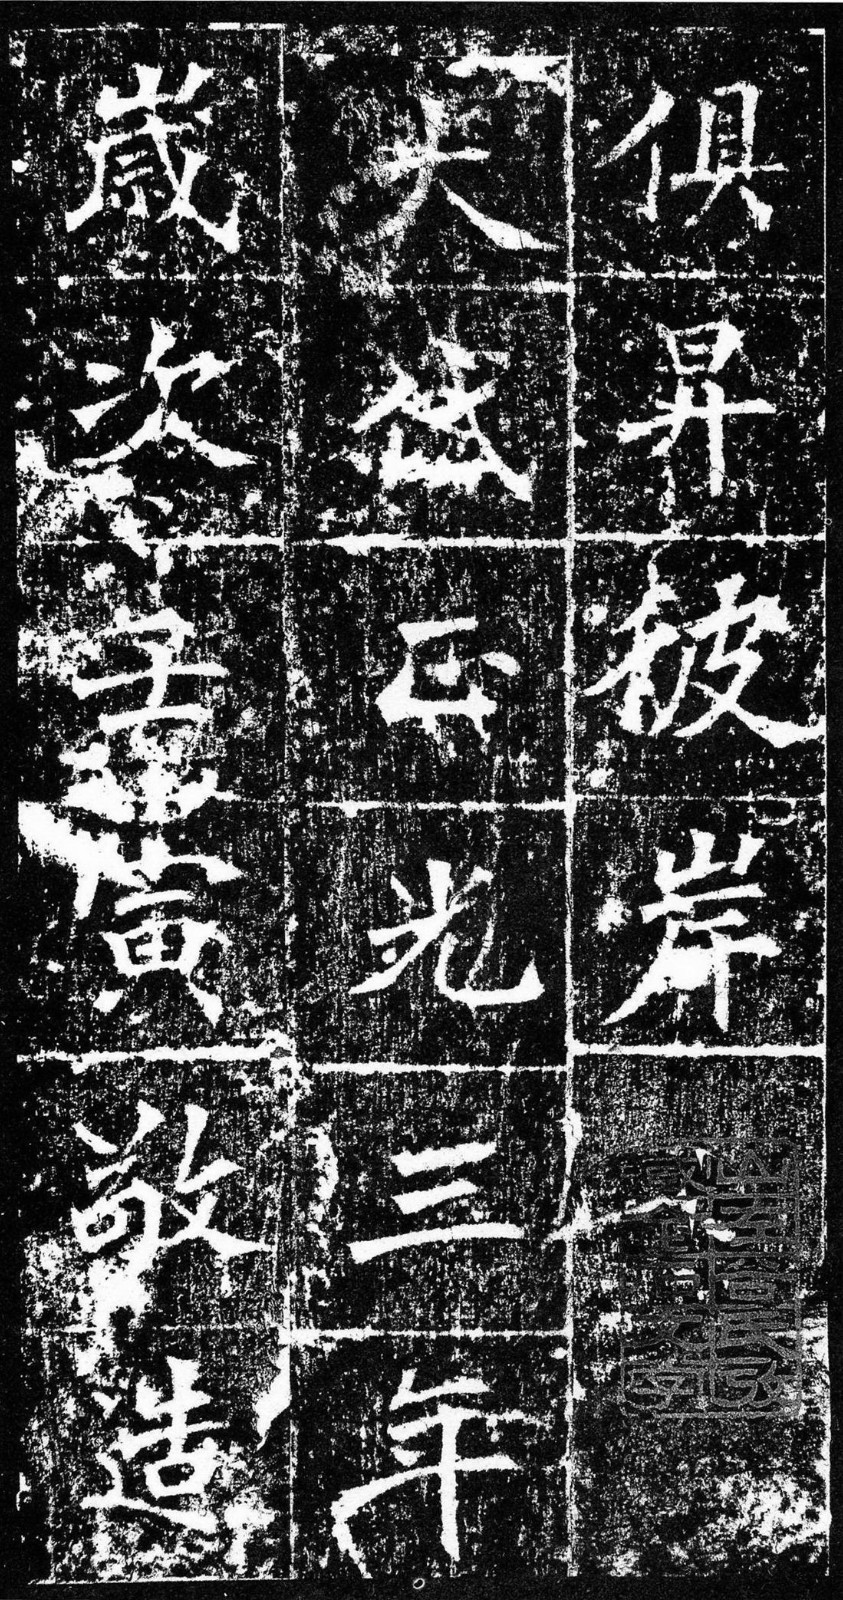 俱昇彼岸
大岱正光三年
嵗次壬寅敬造